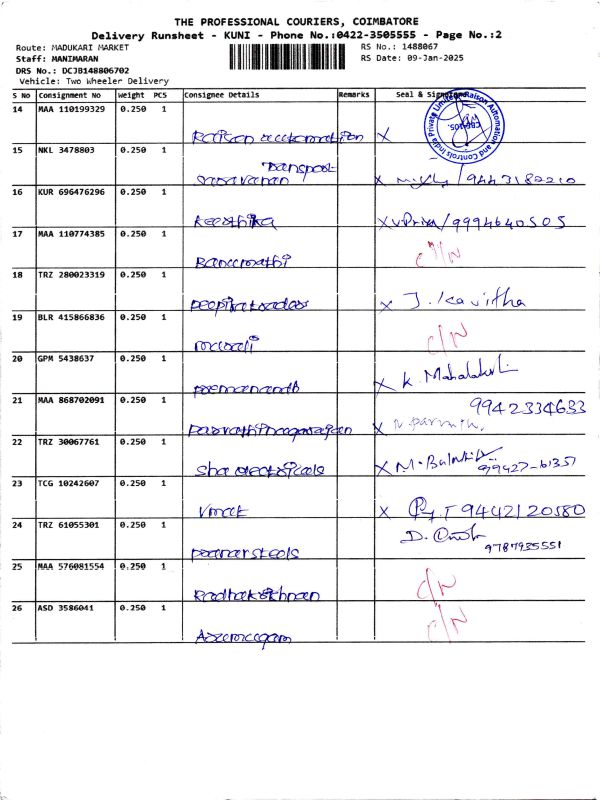 THE PROFESSIONAL COURIERS, COIMBATORE
Delivery Runsheet - KUNI - Phone No.:0422-3505555 - Page No.:2
Route: MADUKARI MARKET RS No.: 1488067
Staff: MANIMARAN RS Date: 09-Jan-2025
DRS No.: DCJB148806702
Vehicle: Two Wheeler Delivery
S No Consignment No Weight PCS Consignee Details Remarks Seal & Signature
14 MAA 110199329 0.250 1
Raison automation X
Raison Automation and Controls India Private Limited
15 NKL 3478803 0.250 1
Transport
Saravanan X 9443182210
16 KUR 696476296 0.250 1
Keerthika X V Priya/9994640505
17 MAA 110774385 0.250 1 C/N
Banumathi
18 TRZ 280023319 0.250 1
X J. Kavitha
19 BLR 415866836 0.250 1 C/N
murali
20 GPM 5438637 0.250 1
Premanandh X K. Mahalakshmi
21 MAA 868702091 0.250 1 9942334633
X
22 TRZ 30067761 0.250 1
Sha electricals X 99427-61351
23 TCG 10242607 0.250 1
Vmat X 9442120580
24 TRZ 61055301 0.250 1 D.
steels 9787935551
25 MAA 576081554 0.250 1 C/N
Radhakrishnan
26 ASD 3586041 0.250 1 C/N
Arumugam